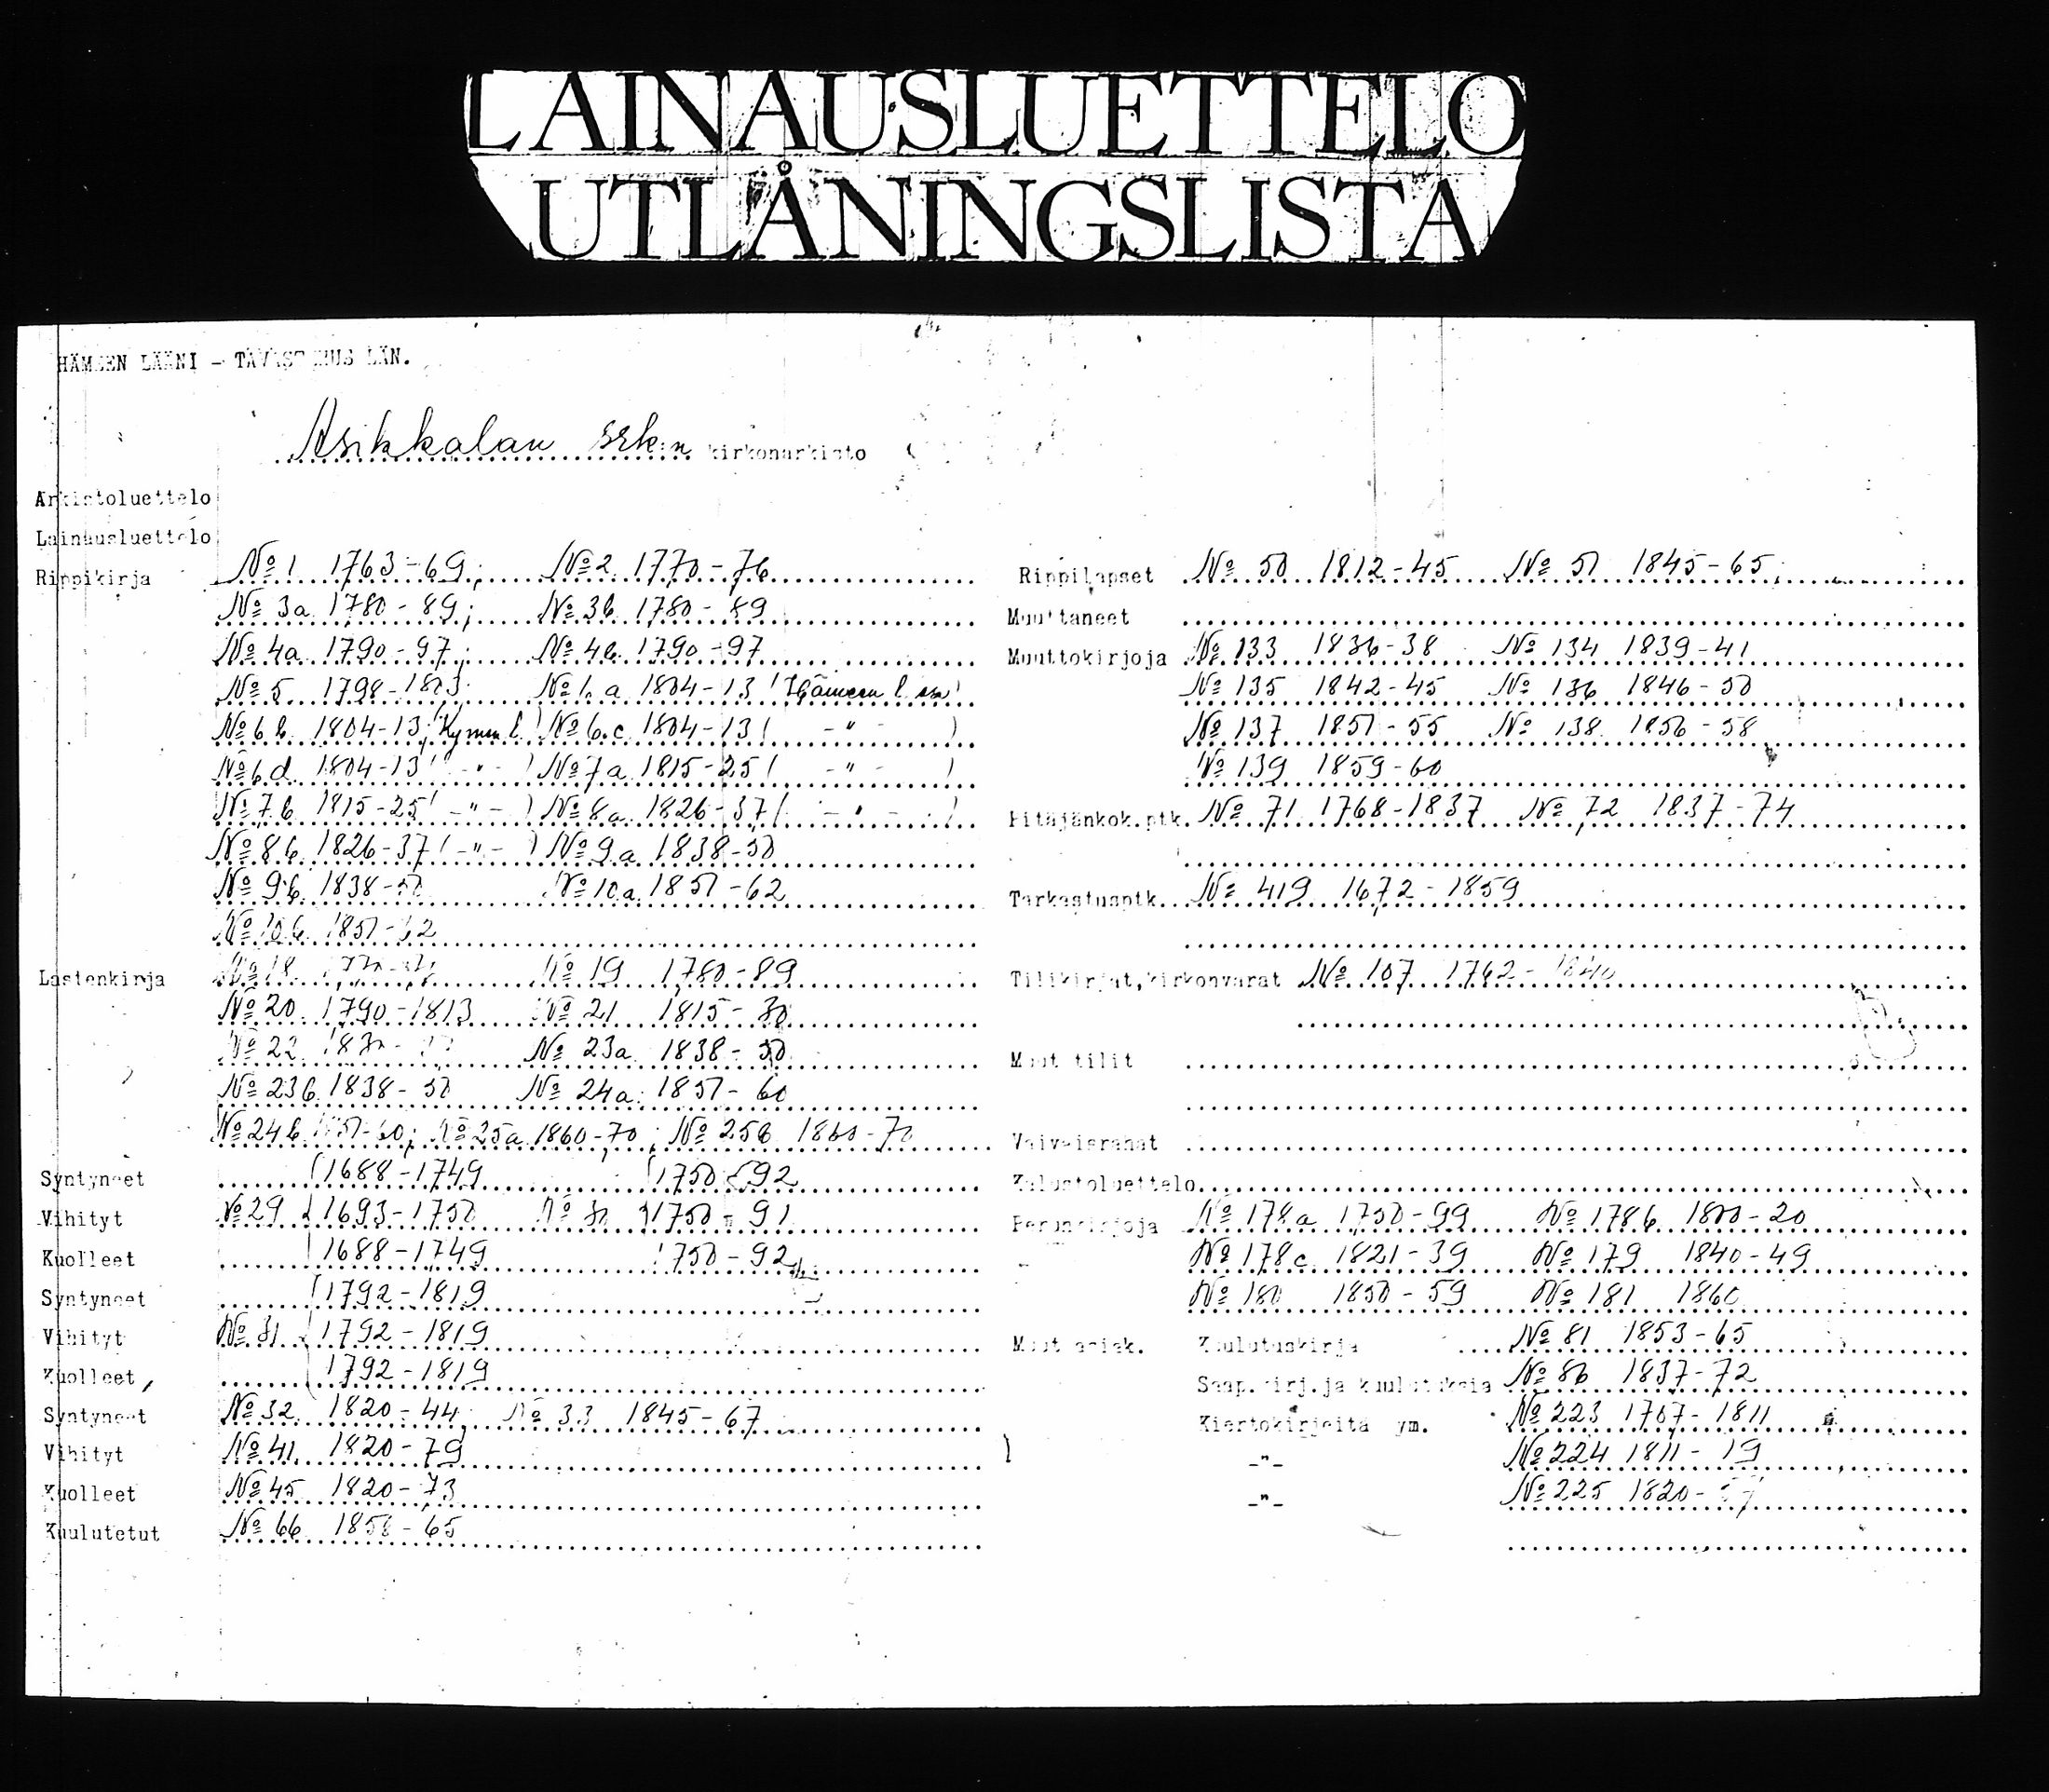 LAINAUSLUETTELO
UTLÅNINGSLISTA
HÄMEEN LÄÄNI - TAVASTEHUS LÄN.
Asikkalan srk:n kirkonarkisto
Arkistoluettelo
Lainausluettelo
Rippikirja № 1 1763-69; № 2 1770-76
№ 3a 1780-89; № 3b 1780-89
№ 4a 1790-97; № 4b 1790-97
№ 5 1798-1803 a 1804-13 (Hämeen l.
№ 6b 1804-13 (Kymen l.) № 6c 1804-13 ( -"- )
№ 6d 1804-13 ( -"- ) № 7a 1815-25 ( -"- )
№ 7b 1815-25 ( -"- ) № 8a 1826-37 ( -"- )
№ 8b 1826-37 ( -"- ) № 9a 1838-50
№ 9b 1838-50 № 10a 1851-62
№ 10b 1851-62
Lastenkirja № 18 № 19 1780-89
№ 20 1790-1813 № 21 1815-30
№ 22 № 23a 1838-50
№ 23b 1838-50 № 24a 1851-60
№ 24b 1851-60; № 25a 1860-70; № 25b 1860-70
Syntyneet 1688-1749 1750-92
Vihityt № 29 1693-1750 № 30 1750-91
Kuolleet 1688-1749 1750-92
Syntyneet 1792-1819
Vihityt № 31 1792-1819
Kuolleet 1792-1819
Syntyneet № 32 1820-44 № 33 1845-67
Vihityt № 41 1820-79
Kuolleet № 45 1820-73
Kuulutetut № 66 1858-65
Rippilapset № 50 1812-45 № 51 1845-65;
Muuttaneet
Muuttokirjoja № 133 1836-38 № 134 1839-41
№ 135 1842-45 № 136 1846-50
№ 137 1851-55 № 138 1856-58
№ 139 1859-60
Pitäjänkok.ptk. № 71 1768-1837 № 72 1837-74
Tarkastusptk. № 419 1672-1859
Tilikirjat, kirkonvarat № 107 1762-1840
Muut tilit
Vaivaisrahat
Kalustoluettelo
Perunkirjoja № 178a 1750-99 № 178b 1800-20
№ 178c 1821-39 № 179 1840-49
№ 180 1850-59 № 181 1860
Muut asiak. Kuulutuskirja № 81 1853-65
Saap.kirj.ja kuulutuksia № 86 1837-72
Kiertokirjeitä ym. № 223 1707-1811
-"- № 224 1811-19
-"- № 225 1820-